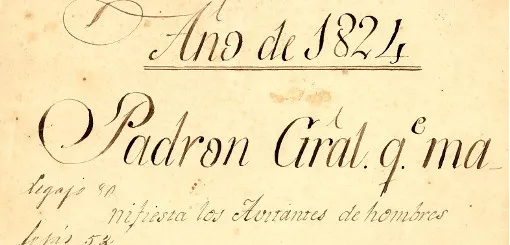 Año de 1824
Padron Gral. q.e ma-
nifiesta los Avitantes de hombres
Legajo